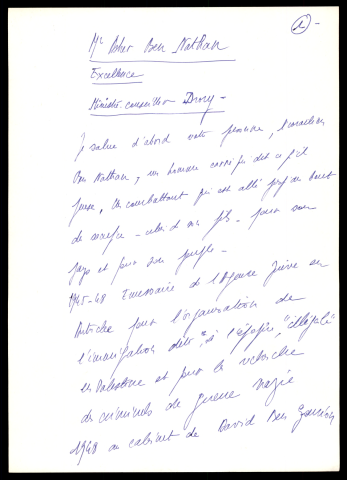 1 -
Mr Asher Ben Nathan
Excellence
Ministre-conseiller Drory -
Je salue d'abord votre personne,
Ben Nathan, un homme
jeune, Un combattant qui est allé jusqu'au bout
de - celui de son fils - pour son
pays et pour son peuple -
1945-48 Emissaire de l'Agence Juive en
Autriche pour l'organisation de
l'immigration dite, à l'époque, "illégale"
en Palestine et pour la recherche
des criminels de guerre nazie
1948 au cabinet de David Ben Gourion